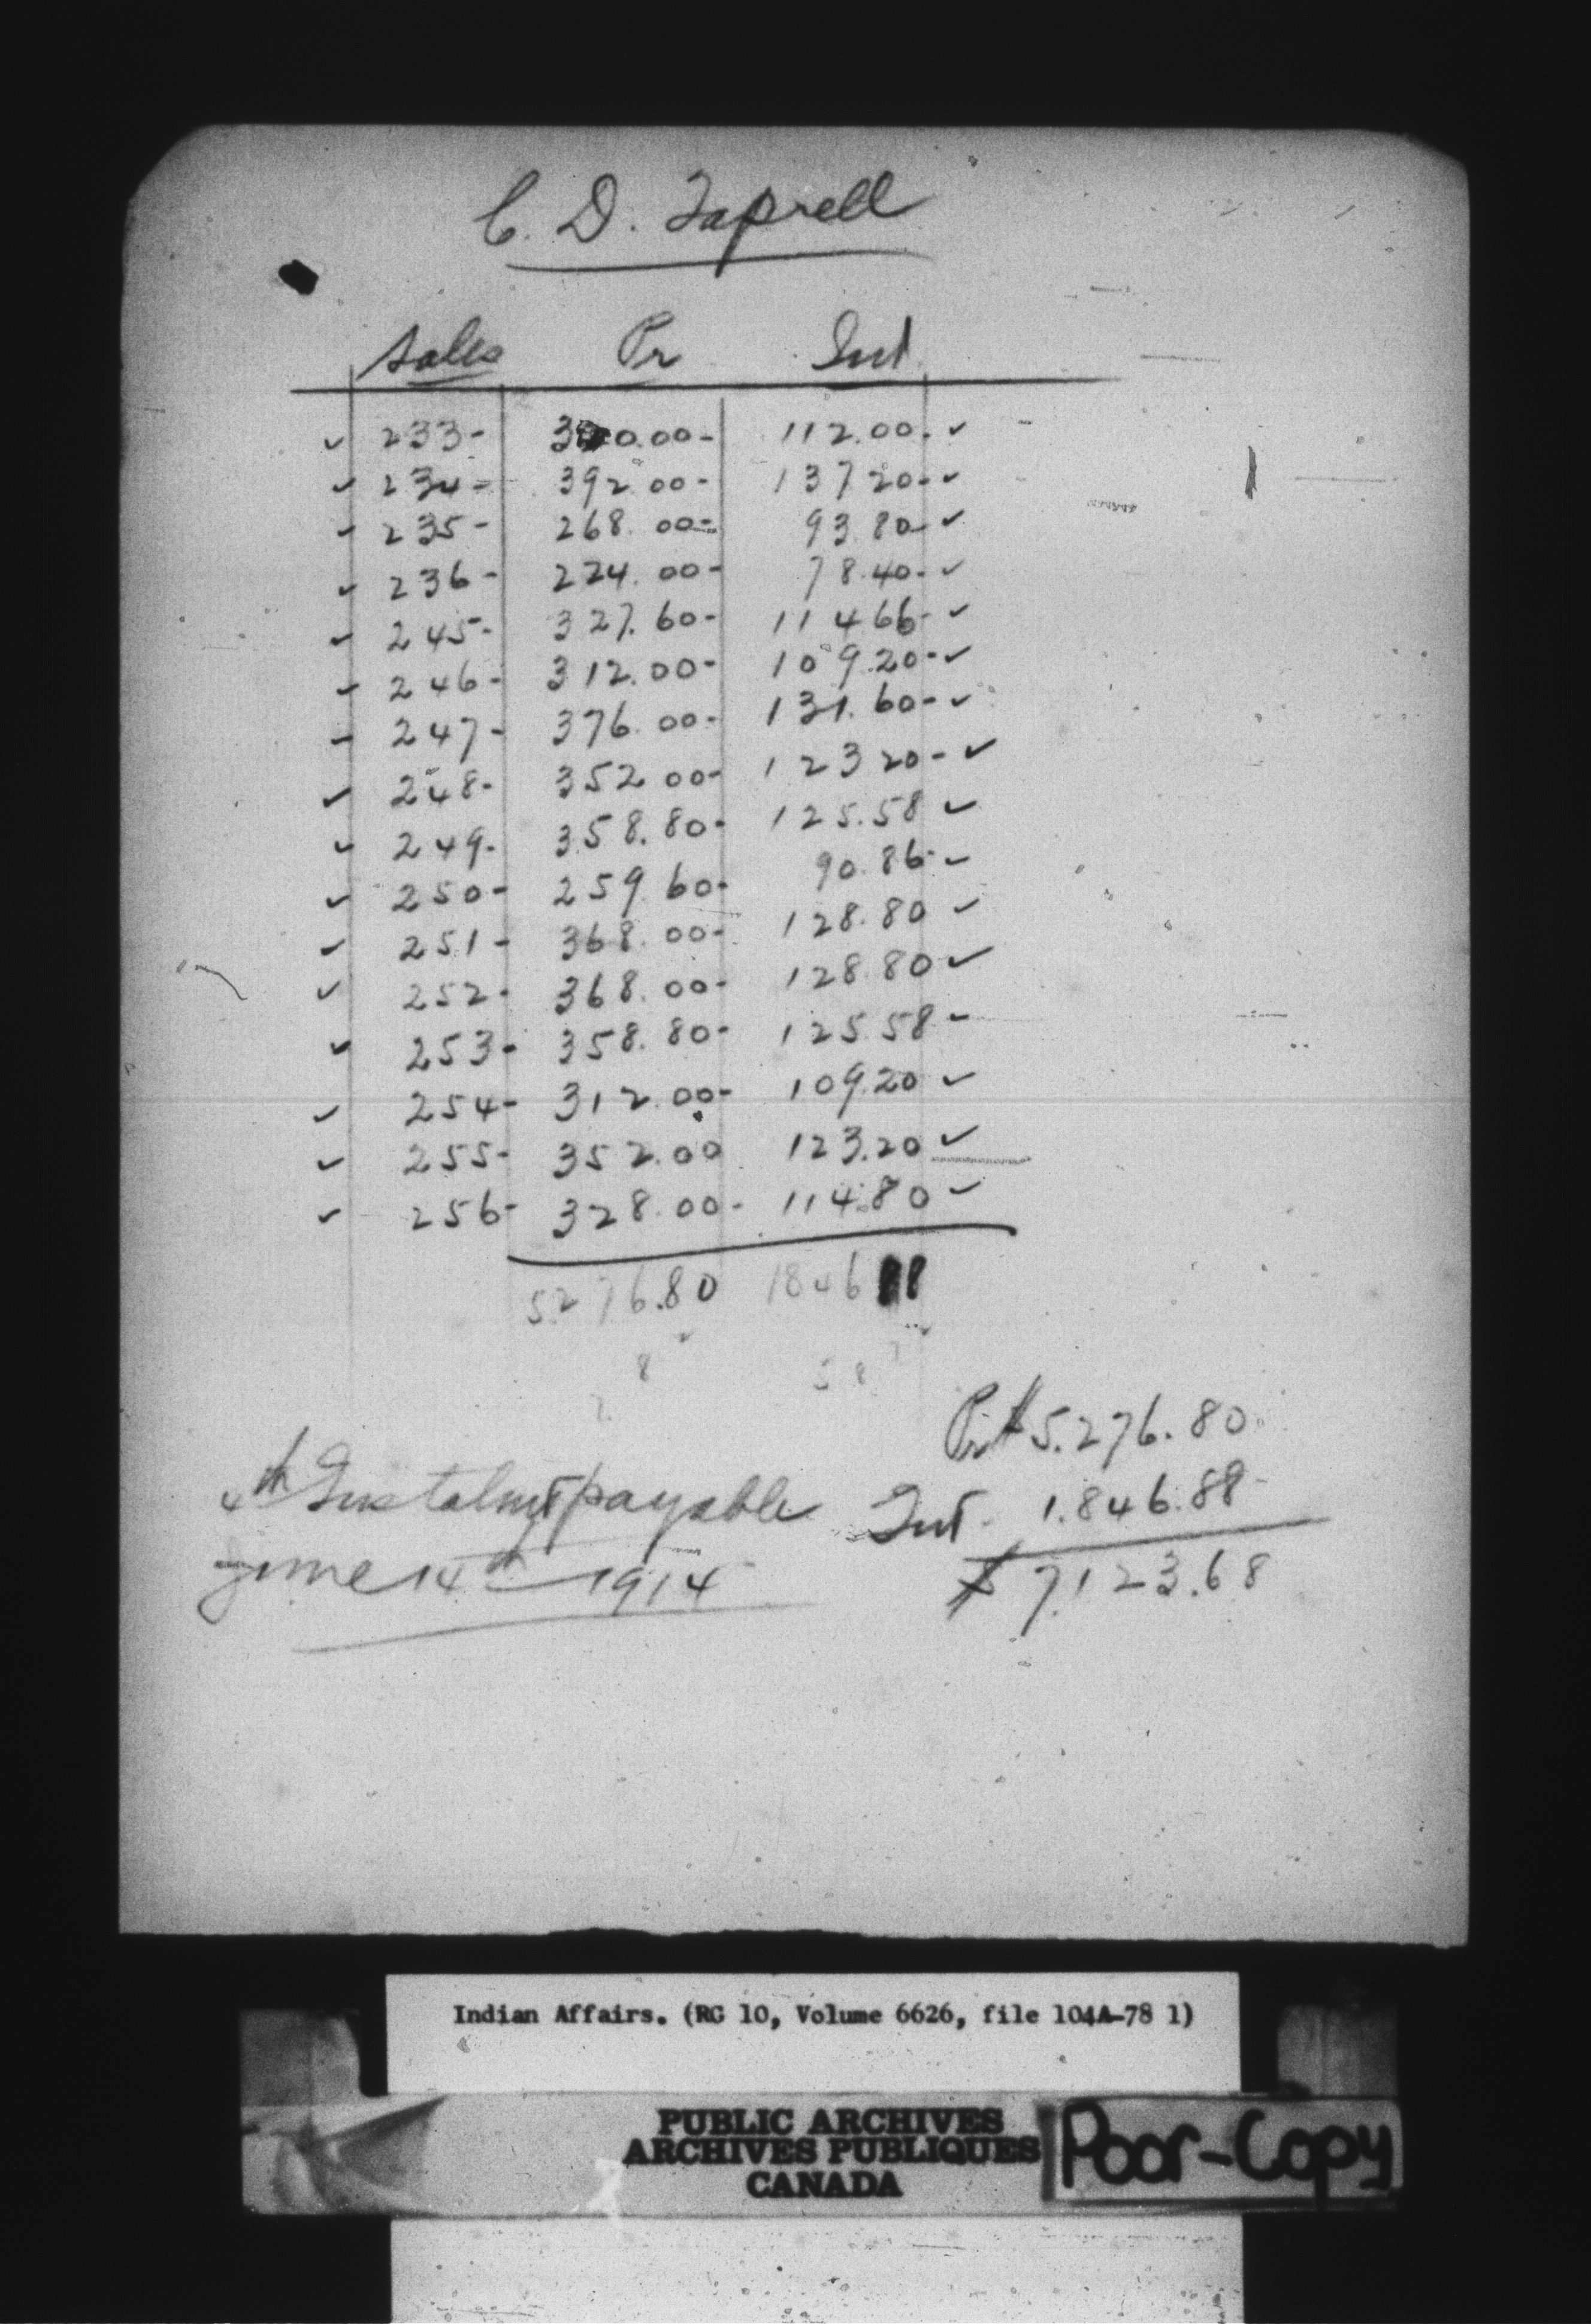 C. D. Taprell
Sales Pr Int
✓ 233- 320.00- 112.00. ✓
✓ 234- 392.00- 137 20- ✓
✓ 235- 268.00- 93.80- ✓
✓ 236- 224.00- 78.40- ✓
✓ 245- 327.60- 114 66- ✓
✓ 246- 312.00- 109.20- ✓
✓ 247- 376.00- 131.60- ✓
✓ 248- 352 00- 123 20- ✓
✓ 249- 358.80- 125.58 ✓
✓ 250- 259 60- 90.86- ✓
✓ 251- 368.00- 128.80 ✓
✓ 252- 368.00- 128.80 ✓
✓ 253- 358.80- 125.58 ✓
✓ 254- 312.00- 109.20 ✓
✓ 255- 352.00 123.20 ✓
✓ 256- 328.00- 114.80 ✓
5276.80 1846 88
Pr $ 5.276.80
4th Instalmt payable Int. 1.846.88
June 14th 1914 $ 7.123.68
Indian Affairs. (RG 10, Volume 6626, file 104A-78 1)
PUBLIC ARCHIVES
ARCHIVES PUBLIQUES
CANADA
Poor-Copy